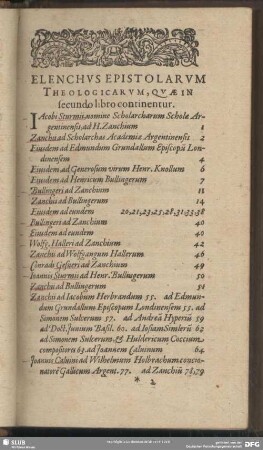 ELENCHVS EPISTOLARVM
THEOLOGICARVM, QVÆ IN
secundo libro continentur.
Iacobi Sturmij, nomine Scholarcharum Scholæ Ar-
gentinensis, ad H. Zanchium 1
Zanchij ad Scholarchas Academiæ Argentinensis 2
Eiusdem ad Edmundum Grundallum Episcopū Lon-
dinensem 4
Eiusdem ad Generosum virum Henr. Knollum 6
Eiusdem ad Henricum Bullingerum 7
Bullingeri ad Zanchium 11
Zanchij ad Bullingerum 14
Eiusdem ad eundem 20,21,23,25,28,31.33.38
Bullingeri ad Zanchium 40
Eiusdem ad eundem 40
Wolfg. Halleri ad Zanchium 42
Zanchij ad Wolfgangum Hallerum 46
Conradi Gesneri ad Zanchium 49
Ioannis Sturmij ad Henr. Bullingerum 50
Zanchij ad Bullingerum 51
Zanchij ad Iacobum Herbrandum 55. ad Edmun-
dum Grundallum Episcopum Londinensem 55. ad
Simonem Sulcerum 57. ad Andreā Hyperiū 59
ad Doct. Iunium Basil. 60. ad Iosiam Simlerū 62
ad Simonem Sulcerum & Hublericum Coccium
compositores 63. ad Ioannem Calvinum 64
Ioannis Calvini ad Wilhelmum Holbrachum concio-
natorē Gallicum Argent. 77. ad Zanchiū 78,79
* 2